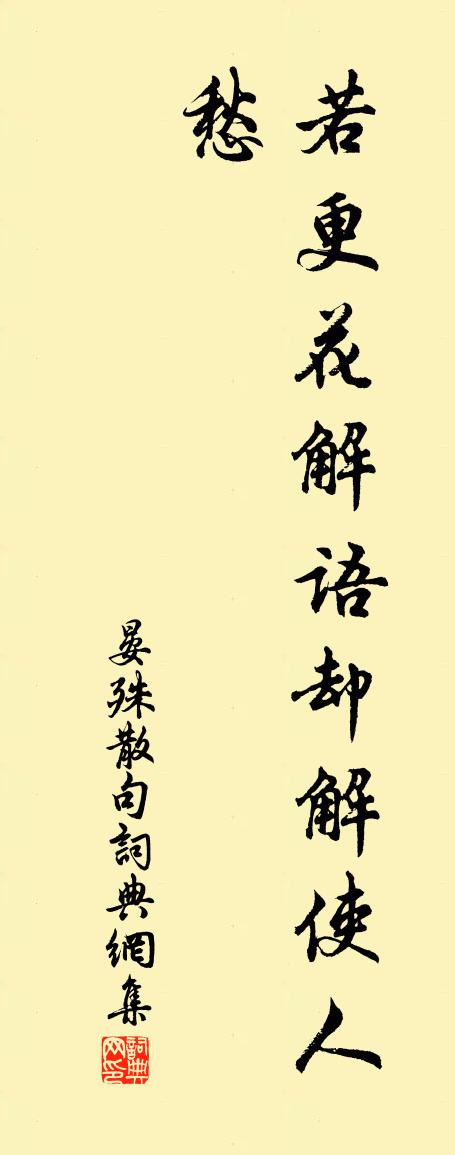 若更花解語却解使人
愁
晏殊散句詞典網集
詞典
网印